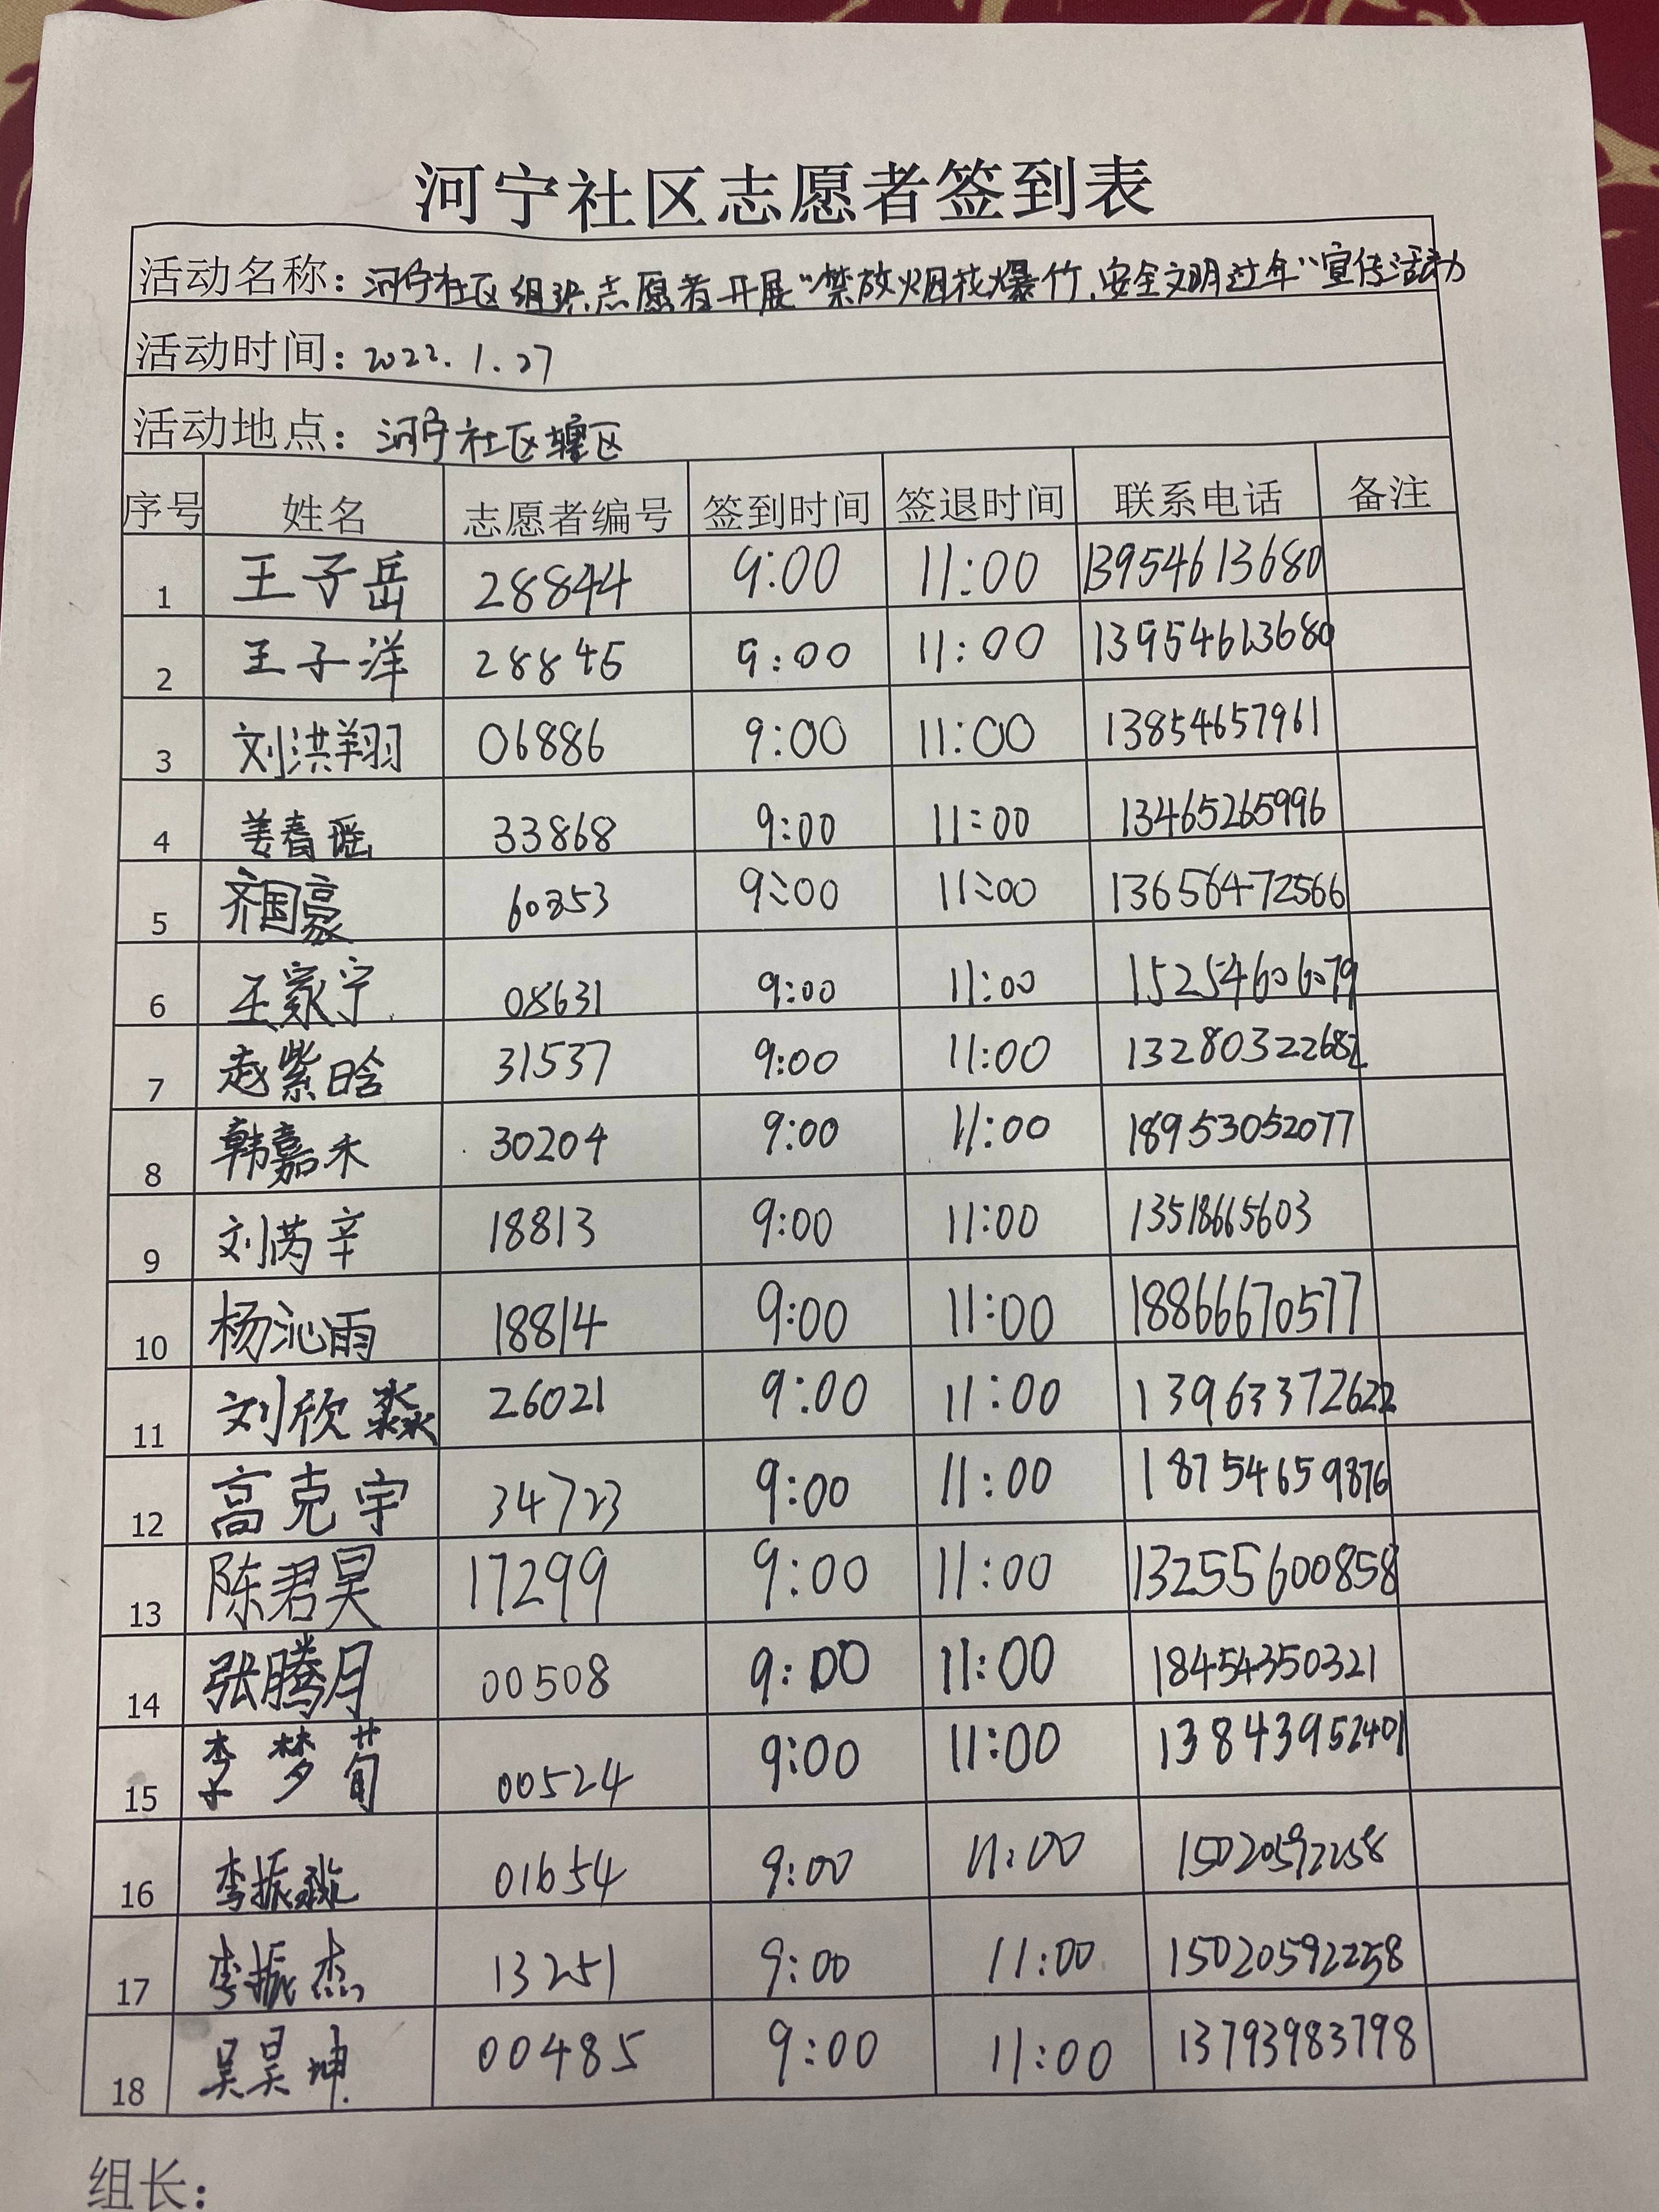 河宁社区志愿者签到表
活动名称：河宁社区组织志愿者开展“禁放烟花爆竹、安全文明过年”宣传活动
活动时间：2022.1.27
活动地点：河宁社区辖区
序号 姓名 志愿者编号 签到时间 签退时间 联系电话 备注
1 王子岳 28844 9:00 11:00 13954613680
2 王子洋 28845 9:00 11:00 13954613680
3 刘洪翔 06886 9:00 11:00 13854657961
4 姜春瑶 33868 9:00 11:00 13465265996
5 齐国豪 60253 9:00 11:00 13656472566
6 王家宁 08631 9:00 11:00 15254606079
7 赵紫晗 31537 9:00 11:00 13280322682
8 韩嘉禾 30204 9:00 11:00 18953052077
9 刘芮辛 18813 9:00 11:00 13518665603
10 杨沁雨 18814 9:00 11:00 18866670577
11 刘欣淼 26021 9:00 11:00 13963372622
12 高克宇 34723 9:00 11:00 18754659876
13 陈君昊 17299 9:00 11:00 13255600858
14 张腾月 00508 9:00 11:00 18454350321
15 李梦荀 00524 9:00 11:00 13843952401
16 李振 01654 9:00 11:00 15020592258
17 李振杰 13251 9:00 11:00 15020592258
18 吴昊坤 00485 9:00 11:00 13793983798
组长：